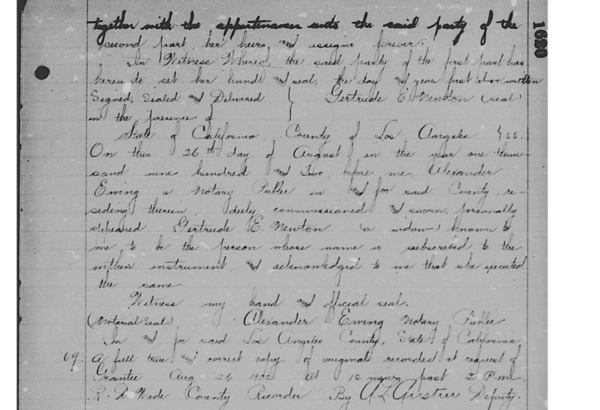 together with the appurtenances unto the said party of the
second part, her heirs, and assigns forever.
In Witness Whereof, the said party of the first part has
herein to set her hand and seal, the day and year first above written
Signed, Sealed and Delivered } Gertrude E. Newton (seal)
in the presence of
State of California, County of Los Angeles } ss.
On this 26th day of August in the year one thou-
sand nine hundred and Two, before me, Alexander
Ewing a Notary Public in and for said County, re-
siding therein, duly commissioned and sworn, personally
appeared Gertrude E. Newton (a widow) known to
me to be the person whose name is subscribed to the
within instrument and acknowledged to me that she executed
the same
Witness my hand and official seal.
(Notarial Seal) Alexander Ewing Notary Public
In and for said Los Angeles County, State of California
69. A full true and correct copy of original recorded at request of
Grantee Aug 26 1902 At 15 min past 2 P.m.
R. D. Wade County Recorder By Deputy.
1620